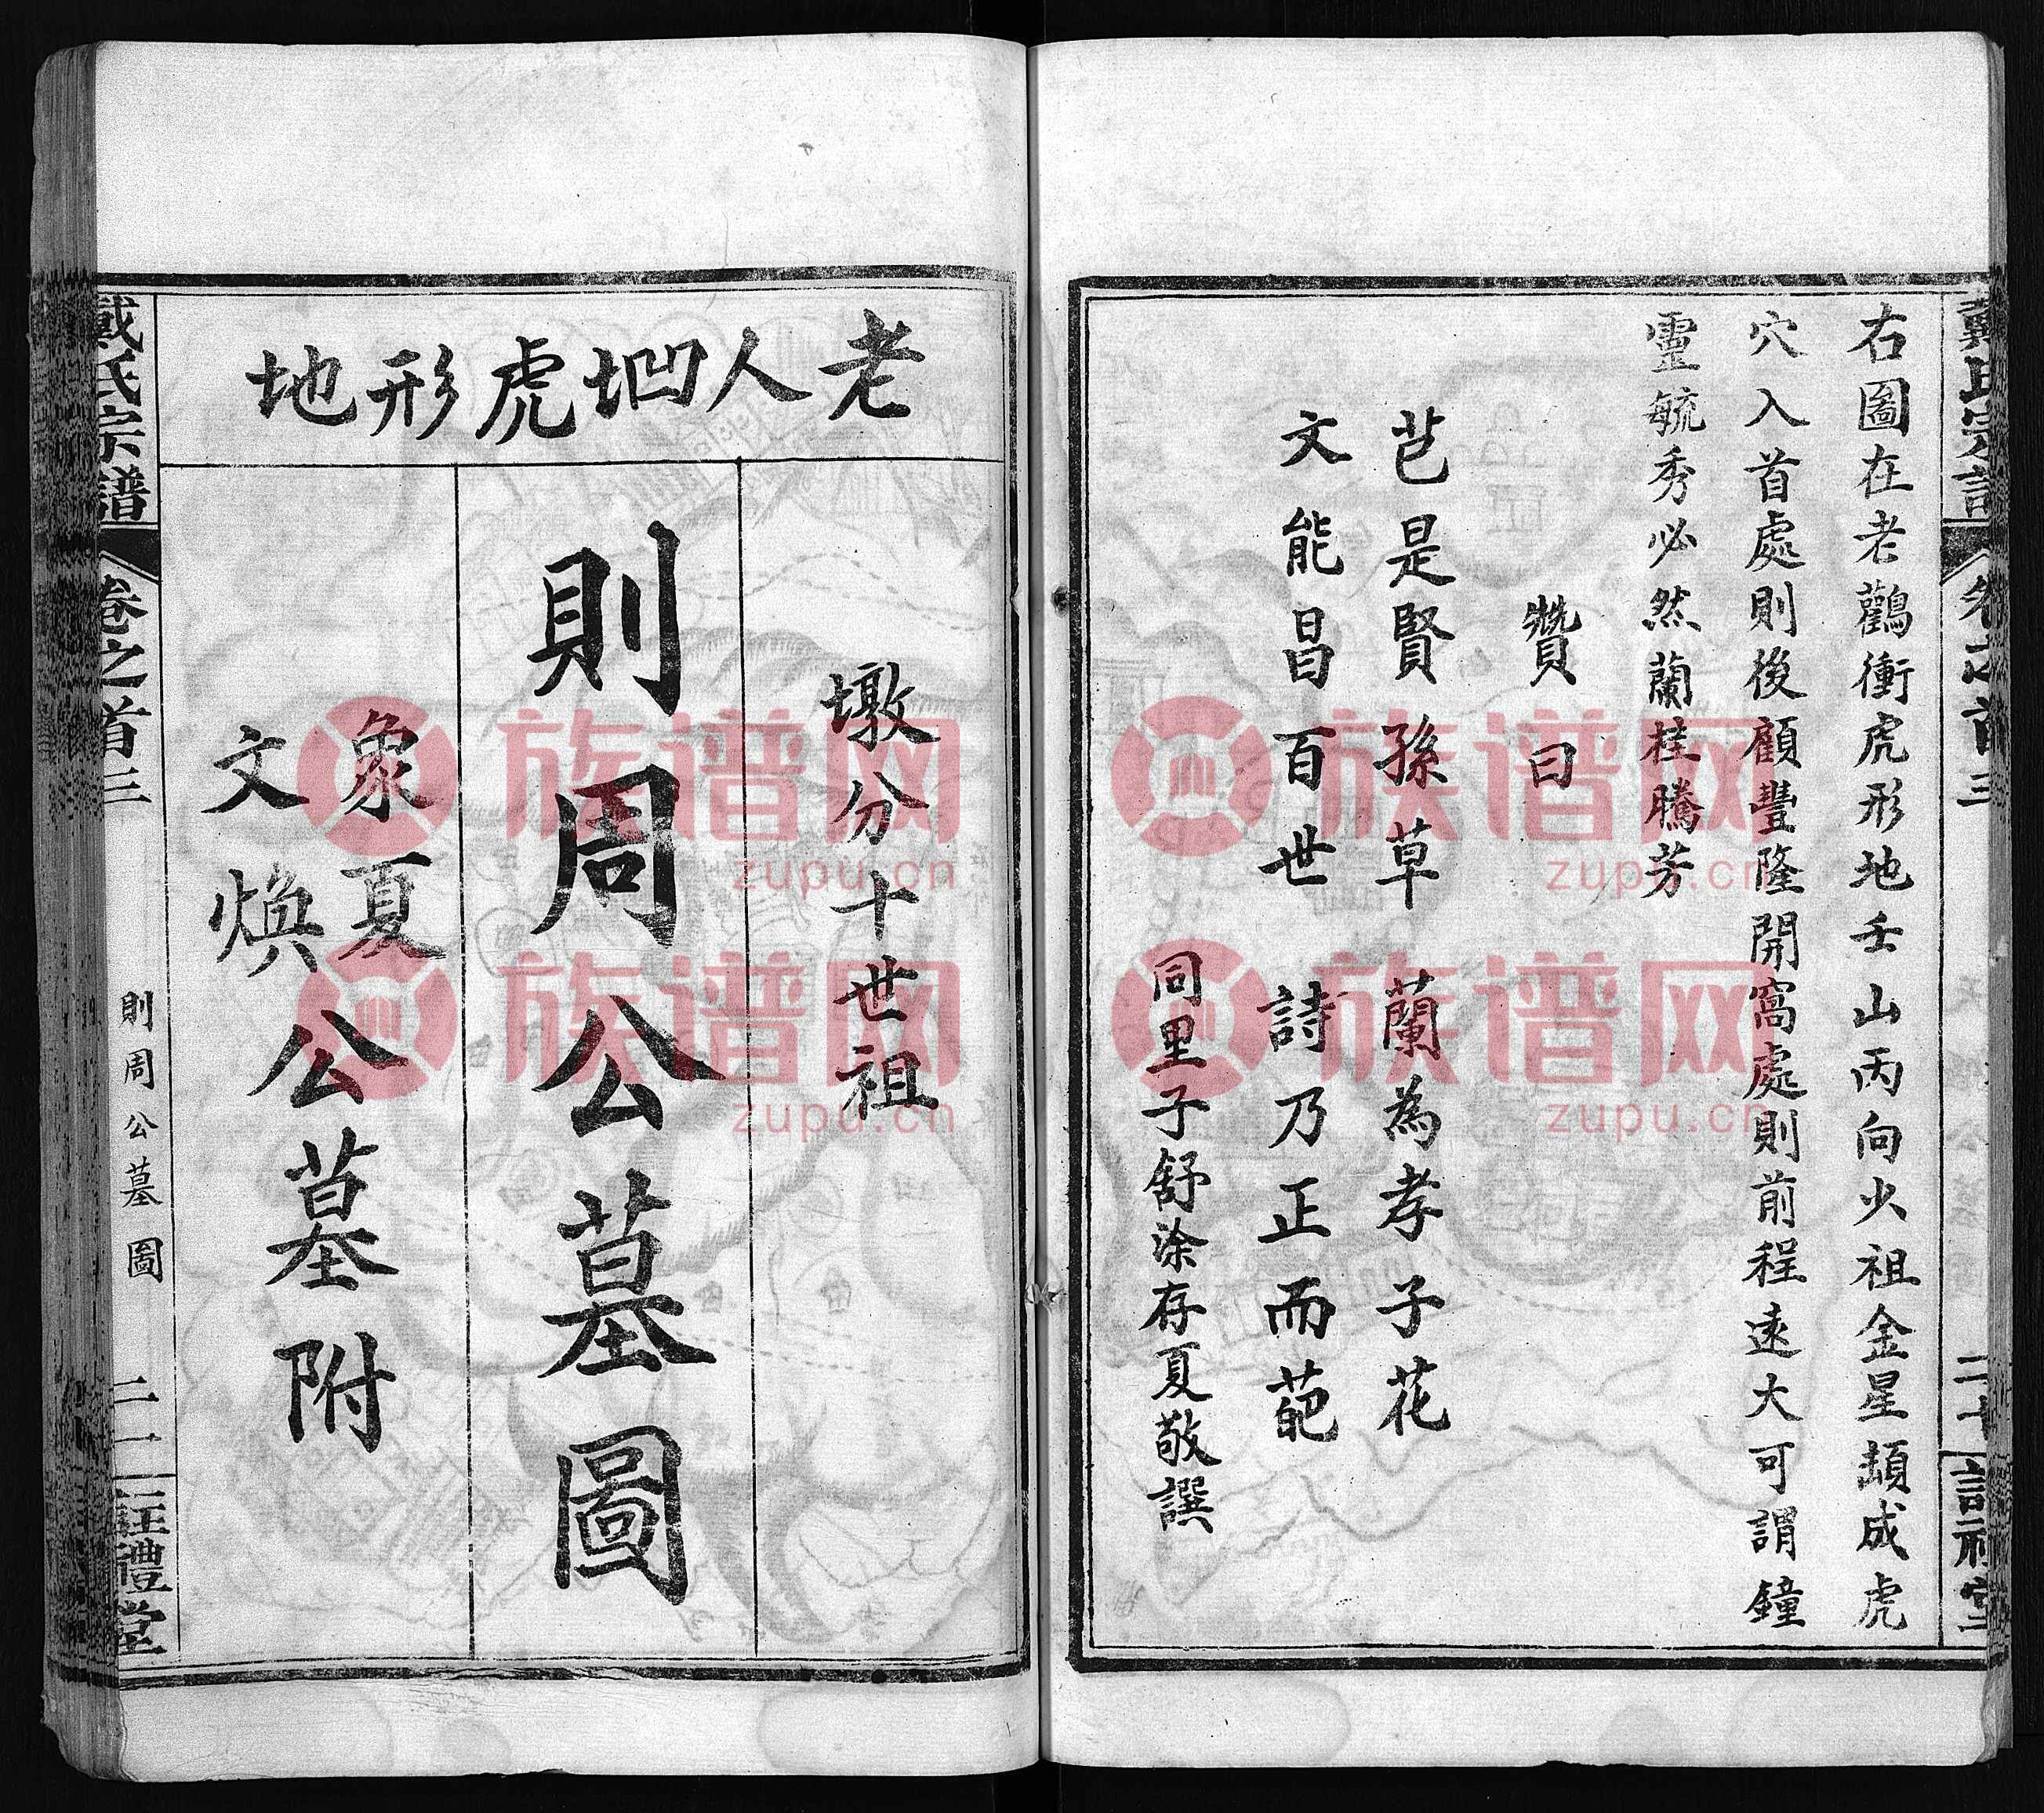 右圖在老鸛衝虎形地壬山丙向火祖金星頡成虎
穴入首處則後顧豐隆開窩處則前程遠大可謂鐘
靈毓秀必然蘭桂騰芳
贊曰
芑是賢孫草　蘭為孝子花
文能昌百世　詩乃正而葩
同里子舒涂存夏敬譔
老人凹虎形地
墩分十世祖
則周公墓圖
象夏
文煥公墓附
戴氏宗譜
卷之首三
則周公墓圖
二一
註禮堂
族谱网
zupu.cn
族谱网
zupu.cn
族谱网
zupu.cn
族谱网
zupu.cn